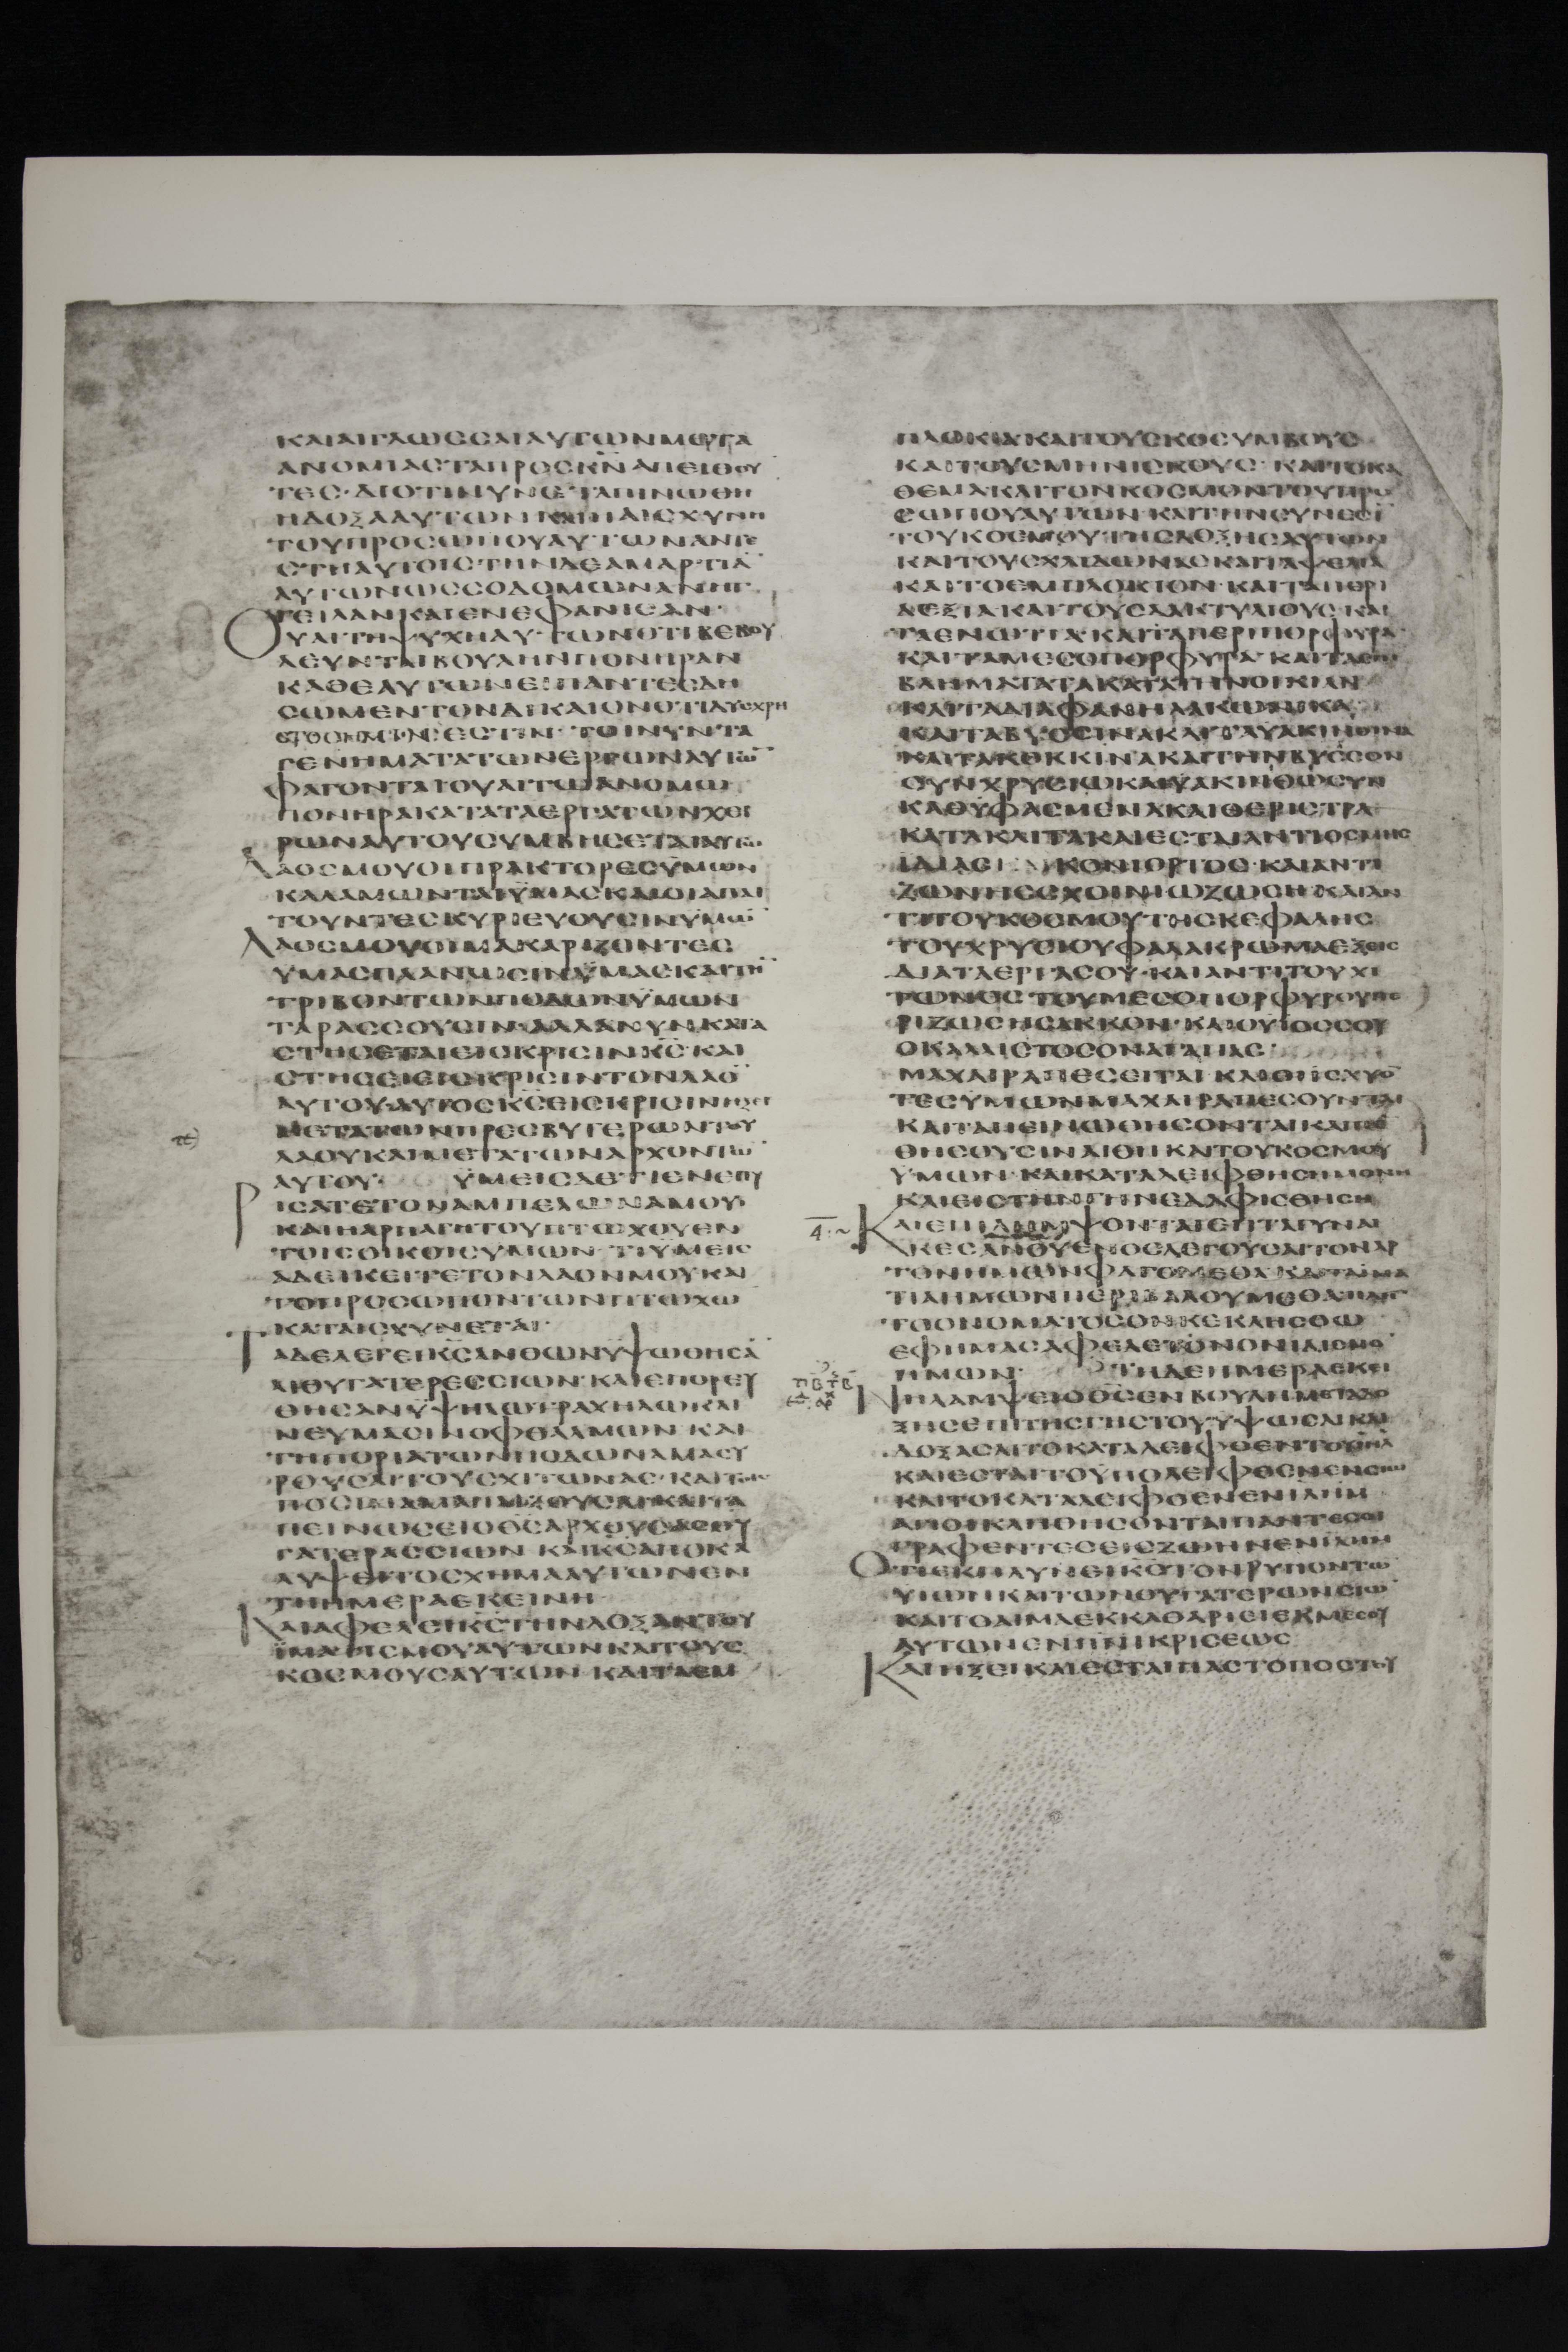 ΚΑΙΑΙΓΛΩΣΣΑΙΑΥΤΩΝΜΕΤΑ
ΑΝΟΜΙΑΣΤΑΠΡΟΣΚΝΑΠΕΙΘΟΥ
ΤΕΣ·ΔΙΟΤΙΝΥΝΕΤΑΠΙΝΩΘΗ
ΗΔΟΞΑΑΥΤΩΝΚΑΙΗΑΙΣΧΥΝΗ
ΤΟΥΠΡΟΣΩΠΟΥΑΥΤΩΝΑΝΤΕ
ΣΤΗΑΥΤΟΙΣ·ΤΗΝΔΕΑΜΑΡΤΙΑ
ΑΥΤΩΝΩΣΣΟΔΟΜΩΝΑΝΗΓ
ΓΕΙΛΑΝΚΑΙΕΝΕΦΑΝΙΣΑΝ·
ΟΥΑΙΤΗΨΥΧΗΑΥΤΩΝΟΤΙΒΕΒΟΥ
ΛΕΥΝΤΑΙΒΟΥΛΗΝΠΟΝΗΡΑΝ
ΚΑΘΕΑΥΤΩΝΕΙΠΑΝΤΕΣΔΗ
ΣΩΜΕΝΤΟΝΔΙΚΑΙΟΝΟΤΙΔΥΣΧΡΗ
ΣΤΟΣΗΜΙΝΕΣΤΙΝ· ΤΟΙΝΥΝΤΑ
ΓΕΝΗΜΑΤΑΤΩΝΕΡΓΩΝΑΥΤΩ
ΦΑΓΟΝΤΑΙΟΥΑΙΤΩΑΝΟΜΩ
ΠΟΝΗΡΑΚΑΤΑΤΑΕΡΓΑΤΩΝΧΕΙ
ΡΩΝΑΥΤΟΥΣΥΜΒΗΣΕΤΑΙΑΥΤΩ
ΛΑΟΣΜΟΥΟΙΠΡΑΚΤΟΡΕΣΥΜΩΝ
ΚΑΛΑΜΩΝΤΑΙΥΜΑΣΚΑΙΟΙΑΠΑΙ
ΤΟΥΝΤΕΣΚΥΡΙΕΥΟΥΣΙΝΥΜΩ
ΛΑΟΣΜΟΥΟΙΜΑΚΑΡΙΖΟΝΤΕΣ
ΥΜΑΣΠΛΑΝΩΣΙΝΥΜΑΣΚΑΙΤΗ
ΤΡΙΒΟΝΤΩΝΠΟΔΩΝΥΜΩΝ
ΤΑΡΑΣΣΟΥΣΙΝ·ΑΛΛΑΝΥΝΚΑΤΑ
ΣΤΗΣΕΤΑΙΕΙΣΚΡΙΣΙΝΚΣ·ΚΑΙ
ΣΤΗΣΕΙΕΙΣΚΡΙΣΙΝΤΟΝΛΑΟ
ΑΥΤΟΥ·ΑΥΤΟΣΚΣΕΙΣΚΡΙΣΙΝΗΞΕΙ
ΜΕΤΑΤΩΝΠΡΕΣΒΥΤΕΡΩΝΤΟΥ
ΛΑΟΥΚΑΙΜΕΤΑΤΩΝΑΡΧΟΝΤΩ
ΑΥΤΟΥ· ΥΜΕΙΣΔΕΤΙΕΝΕΠΥ
ΡΙΣΑΤΕΤΟΝΑΜΠΕΛΩΝΑΜΟΥ
ΚΑΙΗΑΡΠΑΓΗΤΟΥΠΤΩΧΟΥΕΝ
ΤΟΙΣΟΙΚΟΙΣΥΜΩΝ· ΤΙΥΜΕΙΣ
ΑΔΕΙΚΕΙΤΕΤΟΝΛΑΟΝΜΟΥΚΑΙ
ΤΟΠΡΟΣΩΠΟΝΤΩΝΠΤΩΧΩ
ΚΑΤΑΙΣΧΥΝΕΤΑΙ·
ΤΑΔΕΛΕΓΕΙΚΣΑΝΘΩΝΥΨΩΘΗΣΑ
ΑΙΘΥΓΑΤΕΡΕΣΣΙΩΝ·ΚΑΙΕΠΟΡΕΥ
ΘΗΣΑΝΥΨΗΛΩΤΡΑΧΗΛΩΚΑΙ
ΝΕΥΜΑΣΙΝΟΦΘΑΛΜΩΝ·ΚΑΙ
ΤΗΠΟΡΙΑΤΩΝΠΟΔΩΝΑΜΑΣΥ
ΡΟΥΣΑΙΤΟΥΣΧΙΤΩΝΑΣ·ΚΑΙΤΟΙΣ
ΠΟΣΙΝΑΜΑΠΑΙΖΟΥΣΑΙΚΑΙΤΑ
ΠΕΙΝΩΣΕΙΟΘΣΑΡΧΟΥΣΑΣΘΥ
ΓΑΤΕΡΑΣΣΙΩΝ·ΚΑΙΚΣΑΠΟΚΑ
ΛΥΨΕΙΤΟΣΧΗΜΑΑΥΤΩΝΕΝ
ΤΗΗΜΕΡΑΕΚΕΙΝΗ·
ΚΑΙΑΦΕΛΕΙΚΣΤΗΝΔΟΞΑΝΤΟΥ
ΙΜΑΤΙΣΜΟΥΑΥΤΩΝΚΑΙΤΟΥΣ
ΚΟΣΜΟΥΣΑΥΤΩΝ·ΚΑΙΤΑΕΜ
ΠΛΟΚΙΑΚΑΙΤΟΥΣΚΟΣΥΜΒΟΥΣ
ΚΑΙΤΟΥΣΜΗΝΙΣΚΟΥΣ·ΚΑΙΤΟΚΑ
ΘΕΜΑΚΑΙΤΟΝΚΟΣΜΟΝΤΟΥΠΡΟ
ΣΩΠΟΥΑΥΤΩΝ·ΚΑΙΤΗΝΣΥΝΘΕΣΙ
ΤΟΥΚΟΣΜΟΥΤΗΣΔΟΞΗΣΑΥΤΩΝ
ΚΑΙΤΟΥΣΧΛΙΔΩΝΑΣΚΑΙΤΑΨΕΛΙΑ
ΚΑΙΤΟΕΜΠΛΟΚΙΟΝ·ΚΑΙΤΑΠΕΡΙ
ΔΕΞΙΑ·ΚΑΙΤΟΥΣΔΑΚΤΥΛΙΟΥΣ·ΚΑΙ
ΤΑΕΝΩΤΙΑ·ΚΑΙΤΑΠΕΡΙΠΟΡΦΥΡΑ·
ΚΑΙΤΑΜΕΣΟΠΟΡΦΥΡΑ·ΚΑΙΤΑΕΠΙ
ΒΛΗΜΑΤΑΤΑΚΑΤΑΤΗΝΟΙΚΙΑΝ
ΚΑΙΤΑΔΙΑΦΑΝΗΛΑΚΩΝΙΚΑ·
ΚΑΙΤΑΒΥΣΣΙΝΑΚΑΙΤΑΥΑΚΙΝΘΙΝΑ
ΚΑΙΤΑΚΟΚΚΙΝΑΚΑΙΤΗΝΒΥΣΣΟΝ
ΣΥΝΧΡΥΣΙΩΚΑΙΥΑΚΙΝΘΩΣΥΝ
ΚΑΘΥΦΑΣΜΕΝΑΚΑΙΘΕΡΙΣΤΡΑ
ΚΑΤΑΚΛΙΤΑΚΑΙΕΣΤΑΙΑΝΤΙΟΣΜΗΣ
ΙΔΙΑΣ ΚΟΝΙΟΡΤΟΣ·ΚΑΙΑΝΤΙ
ΖΩΝΗΣΣΧΟΙΝΙΩΖΩΣΗ·ΚΑΙΑΝ
ΤΙΤΟΥΚΟΣΜΟΥΤΗΣΚΕΦΑΛΗΣ
ΤΟΥΧΡΥΣΙΟΥΦΑΛΑΚΡΩΜΑΕΞΕΙΣ
ΔΙΑΤΑΕΡΓΑΣΟΥ·ΚΑΙΑΝΤΙΤΟΥΧΙ
ΤΩΝΟΣΤΟΥΜΕΣΟΠΟΡΦΥΡΟΥΠΕ
ΡΙΖΩΣΗΣΑΚΚΟΝ·ΚΑΙΟΥΙΟΣΣΟΥ
ΟΚΑΛΛΙΣΤΟΣΟΝΑΓΑΠΑΣ
ΜΑΧΑΙΡΑΠΕΣΕΙΤΑΙ·ΚΑΙΟΙΙΣΧΥΟ
ΤΕΣΥΜΩΝΜΑΧΑΙΡΑΠΕΣΟΥΝΤΑΙ
ΚΑΙΤΑΠΕΙΝΩΘΗΣΟΝΤΑΙΚΑΙΠΕΝ
ΘΗΣΟΥΣΙΝΑΙΘΗΚΑΙΤΟΥΚΟΣΜΟΥ
ΥΜΩΝ·ΚΑΙΚΑΤΑΛΕΙΦΘΗΣΗΜΟΝΗ
ΚΑΙΕΙΣΤΗΝΓΗΝΕΔΑΦΙΣΘΗΣΗ
4·~ ΚΑΙΕΠΙΛΗΜΨΟΝΤΑΙΕΠΤΑΓΥΝΑΙ
ΚΕΣΑΝΘΥΕΝΟΣΛΕΓΟΥΣΑΙΤΟΝΑΡ
ΤΟΝΗΜΩΝΦΑΓΟΜΕΘΑ·ΚΑΙΤΑΙΜΑ
ΤΙΑΗΜΩΝΠΕΡΙΒΑΛΟΥΜΕΘΑΠΛΗΝ
ΤΟΟΝΟΜΑΤΟΣΟΝΚΕΚΛΗΣΘΩ
ΕΦΗΜΑΣΑΦΕΛΕΤΟΝΟΝΙΔΙΣΜΟ
ΗΜΩΝ· ΤΗΔΕΗΜΕΡΑΕΚΕΙ
ΝΗΛΑΜΨΕΙΟΘΣΕΝΒΟΥΛΗΜΕΤΑΔΟ
ΞΗΣΕΠΙΤΗΣΓΗΣΤΟΥΥΨΩΣΑΙΚΑΙ
ΔΟΞΑΣΑΙΤΟΚΑΤΑΛΕΙΦΘΕΝΤΟΥΙΗΛ
ΚΑΙΕΣΤΑΙΤΟΥΠΟΛΕΙΦΘΕΝΕΝΣΙΩ
ΚΑΙΤΟΚΑΤΑΛΕΙΦΘΕΝΕΝΙΛΗΜ
ΑΓΙΟΙΚΛΗΘΗΣΟΝΤΑΙΠΑΝΤΕΣΟΙ
ΓΡΑΦΕΝΤΕΣΕΙΣΖΩΗΝΕΝΙΛΗΜ
ΟΤΙΕΚΠΛΥΝΕΙΚΣΤΟΝΡΥΠΟΝΤΩ
ΥΙΩΝΚΑΙΤΩΝΘΥΓΑΤΕΡΩΝΣΙΩ
ΚΑΙΤΟΑΙΜΑΕΚΚΑΘΑΡΙΕΙΕΚΜΕΣΟΥ
ΑΥΤΩΝΕΝΠΝΙΚΡΙΣΕΩΣ
ΚΑΙΗΞΕΙΚΑΙΕΣΤΑΙΠΑΣΤΟΠΟΣΤΟΥ